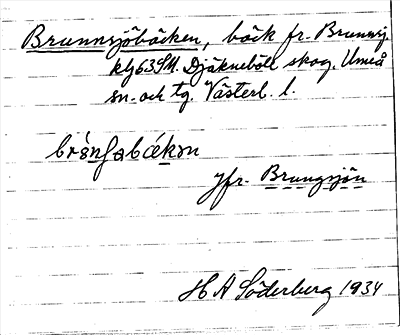 Brunnsjöbäcken, bäck fr. Brunnsj.
klg63SH. Djäkneböle skog. Umeå
sn. och tg. Västerb. l.
Jfr. Brungsjön
H A Söderberg 1934